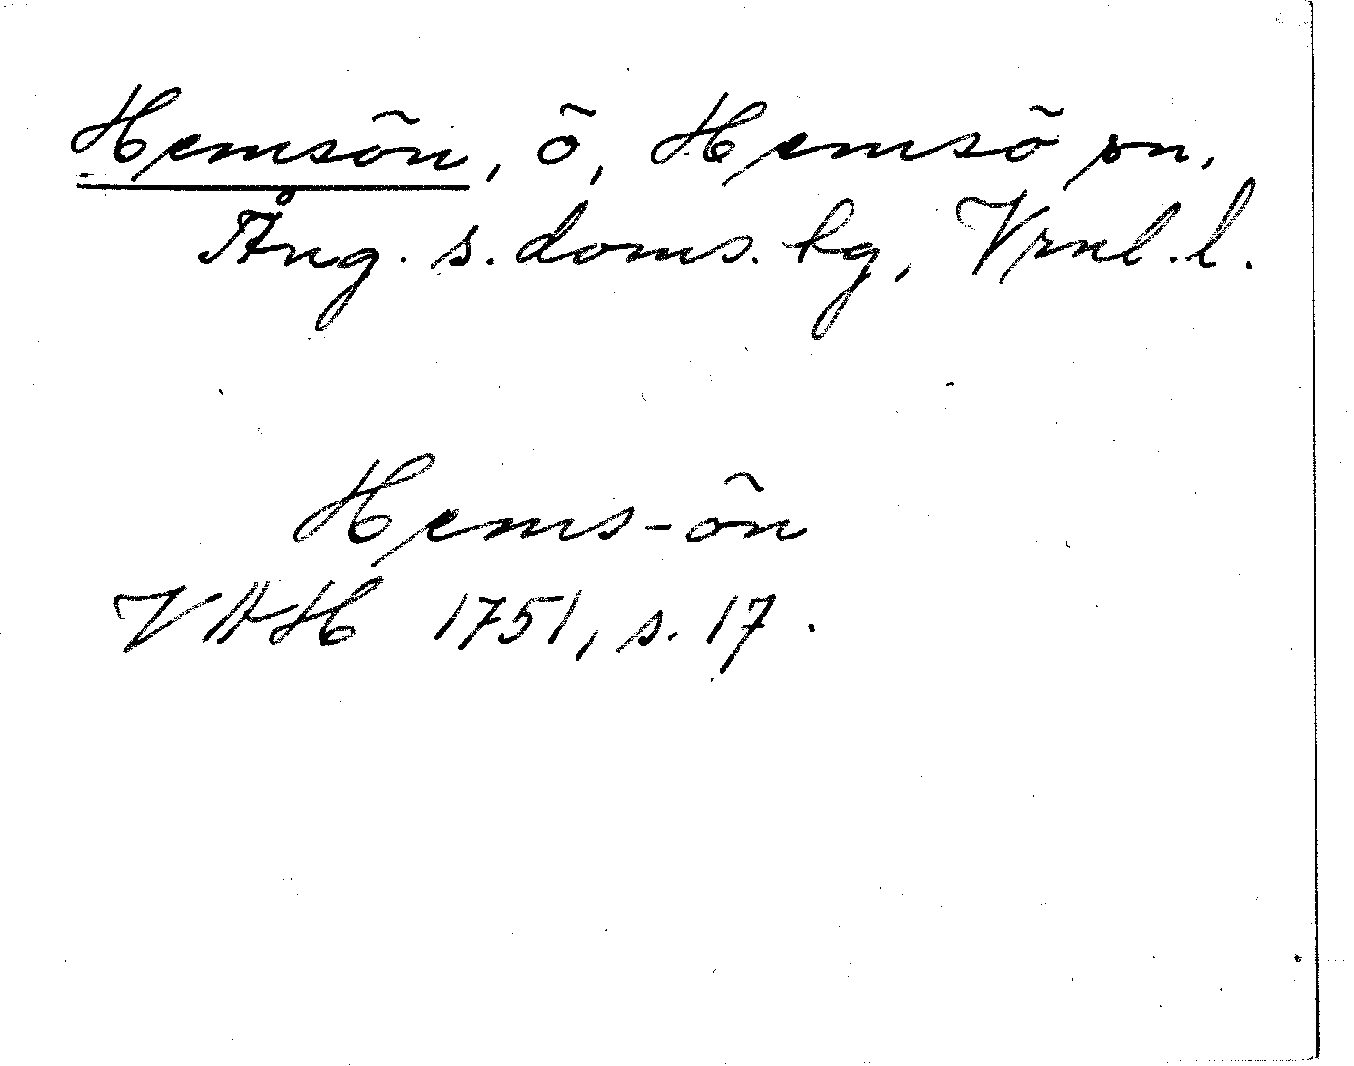 Hemsön, ö, Hemsö sn,
Ång. s. doms. lg, Vrnl. l.
Hems-ön
VAH 1751, s. 17.